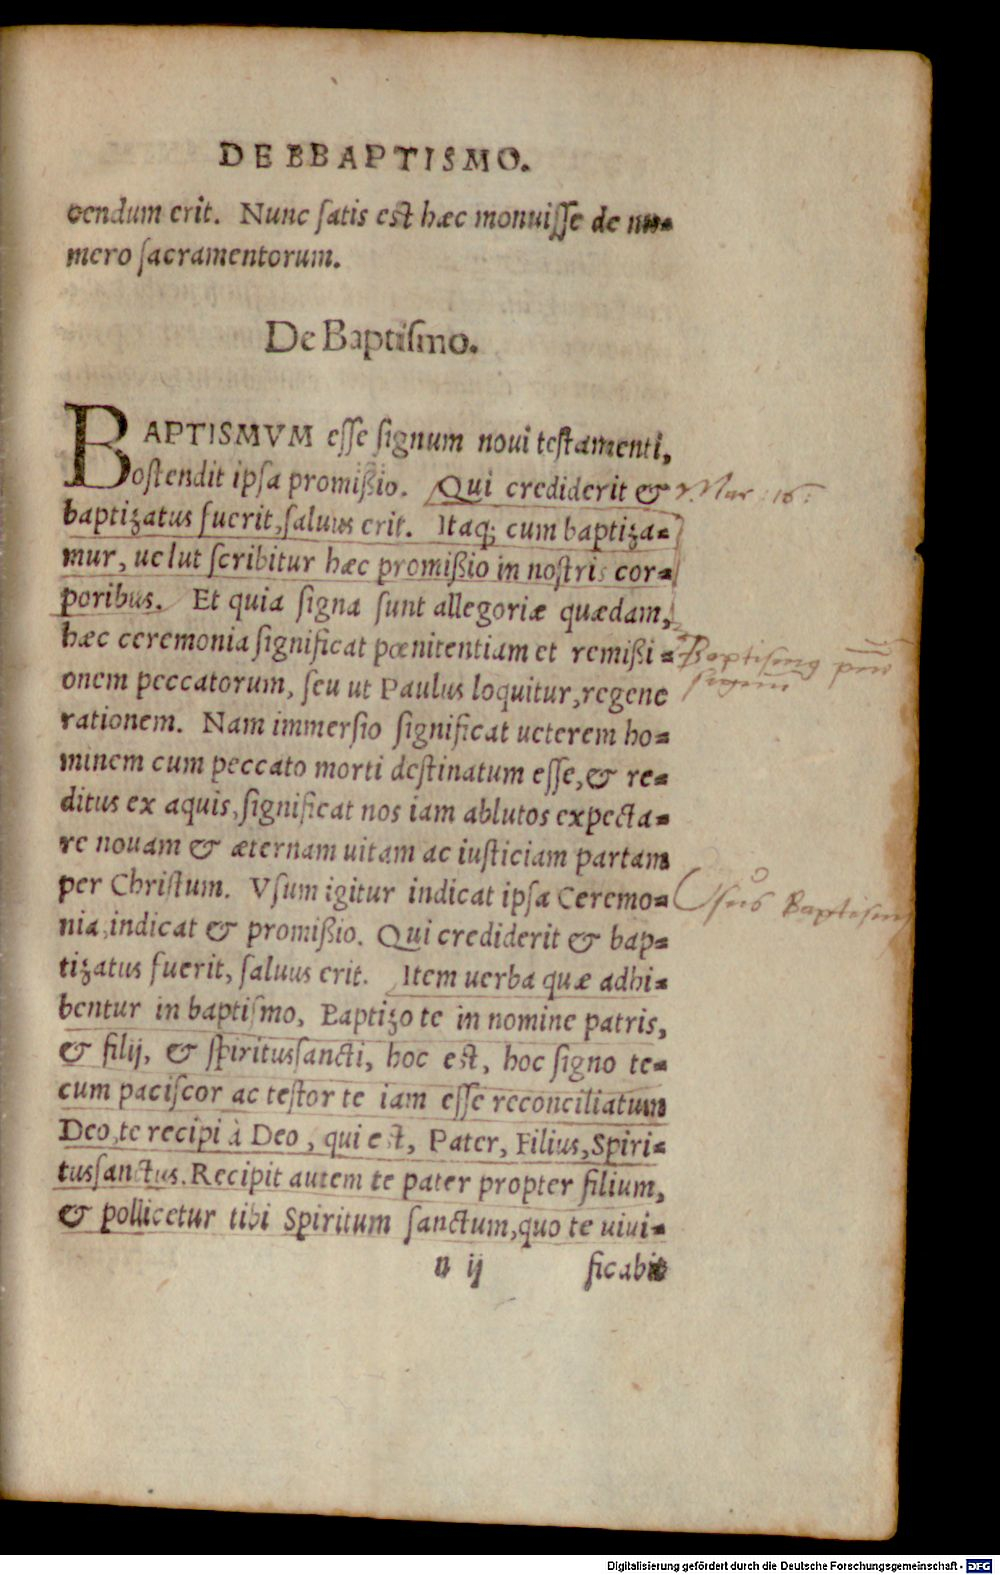 DE BBAPTISMO.
cendum erit. Nunc ſatis eſt hæc monuiſſe de nu=
mero ſacramentorum.
De Baptiſmo.
BAPTISMVM eſſe ſignum noui teſtamenti,
oſtendit ipſa promißio. Qui crediderit &
Mar: 16:
baptizatus fuerit, ſaluus erit. Itaq; cum baptiza=
mur, uelut ſcribitur hæc promißio in noſtris cor=
poribus. Et quia ſigna ſunt allegoriæ quædam,
hæc ceremonia ſignificat pœnitentiam et remißi=
Baptiſmus
onem peccatorum, ſeu ut Paulus loquitur, regene
rationem. Nam immerſio ſignificat ueterem ho=
minem cum peccato morti deſtinatum eſſe, & re=
ditus ex aquis, ſignificat nos iam ablutos expecta=
re nouam & æternam uitam ac iuſticiam partam
per Chriſtum. Vſum igitur indicat ipſa Ceremo=
Vſus Baptiſmi
nia, indicat & promißio. Qui crediderit & bap=
tizatus fuerit, ſaluus erit. Item uerba quæ adhi=
bentur in baptiſmo, Baptizo te in nomine patris,
& filij, & ſpiritusſancti, hoc eſt, hoc ſigno te=
cum paciſcor ac teſtor te iam eſſe reconciliatum
Deo, te recipi à Deo, qui eſt, Pater, Filius, Spiri=
tusſanctus. Recipit autem te pater propter filium,
& pollicetur tibi Spiritum ſanctum, quo te uiui=
n ij ficabit
Digitalisierung gefördert durch die Deutsche Forschungsgemeinschaft - DFG